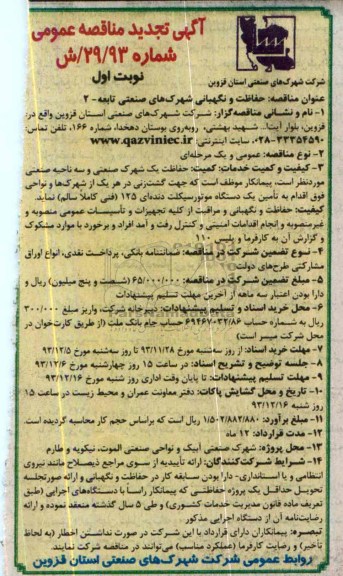 آگهی تجدید مناقصه عمومی
شماره ۲۹/۹۳/ش
نوبت اول
شرکت شهرک‌های صنعتی استان قزوین
عنوان مناقصه: حفاظت و نگهبانی شهرک‌های صنعتی تابعه - ۲
۱- نام و نشانی مناقصه‌گزار: شرکت شهرک‌های صنعتی استان قزوین واقع در:
قزوین، بلوار آیت‌ا... شهید بهشتی، روبه‌روی بوستان دهخدا، شماره ۱۶۶، تلفن تماس:
۰۲۸-۳۳۳۵۴۵۹۰، سایت اینترنتی: www.qazviniec.ir
۲- نوع مناقصه: عمومی و یک مرحله‌ای
۳- کیفیت و کمیت خدمات: کمیت: حفاظت یک شهرک صنعتی و سه ناحیه صنعتی
موردنظر است، پیمانکار موظف است که جهت گشت‌زنی در هر یک از شهرک‌ها و نواحی
فوق اقدام به تأمین یک دستگاه موتورسیکلت دنده‌ای ۱۲۵ (فنی کاملاً سالم) نماید.
کیفیت: حفاظت و نگهبانی و مراقبت از کلیه تجهیزات و تأسیسات عمومی منصوبه و
غیرمنصوبه و انجام اقدامات امنیتی و کنترل رفت و آمد افراد و برخورد با موارد مشکوک
و گزارش آن به کارفرما و پلیس ۱۱۰
۴- نوع تضمین شرکت در مناقصه: ضمانتنامه بانکی، پرداخت نقدی، انواع اوراق
مشارکتی طرح‌های دولت
۵- مبلغ تضمین شرکت در مناقصه: ۶۵/۰۰۰/۰۰۰ (شصت و پنج میلیون) ریال و
دارا بودن اعتبار سه ماهه از آخرین مهلت تسلیم پیشنهادات
۶- محل خرید اسناد و تسلیم پیشنهادات: دبیرخانه شرکت، واریز مبلغ ۳۰۰/۰۰۰
ریال به شماره حساب ۶۹۴۶۷۰۳۲/۸۶ حساب جام بانک ملت (از طریق کارت‌خوان در
محل شرکت میسر است)
۷- مهلت خرید اسناد: از روز سه‌شنبه مورخ ۹۳/۱۱/۲۸ تا روز سه‌شنبه مورخ ۹۳/۱۲/۵
۸- جلسه توضیح و تشریح اسناد: در ساعت ۱۵ روز چهارشنبه مورخ ۹۳/۱۲/۶
۹- مهلت تسلیم پیشنهادات: تا پایان وقت اداری روز شنبه مورخ ۹۳/۱۲/۱۶
۱۰- تاریخ و محل گشایش پاکات: دفتر معاونت عمران و محیط زیست در ساعت ۱۵
روز شنبه ۹۳/۱۲/۱۶
۱۱- مبلغ برآورد: ۱/۵۰۲/۸۸۲/۸۸۰ ریال است که براساس حجم کار محاسبه گردیده است.
۱۲- مدت قرارداد: ۱۲ ماه
۱۳- محل پروژه: شهرک صنعتی آبیک و نواحی صنعتی الموت، نیکویه و طارم
۱۴- شرایط شرکت‌کنندگان: ارائه تأییدیه از سوی مراجع ذیصلاح مانند نیروی
انتظامی و یا استانداری- دارا بودن سابقه کار در حفاظت و نگهبانی و ارائه صورتجلسه
تحویل حداقل یک پروژه حفاظتی که پیمانکار راساً با دستگاه‌های اجرایی (طبق
تعریف ماده قانون مدیریت خدمات کشوری) و طی ۵ سال گذشته منعقد نموده و ارائه
رضایت‌نامه آن از دستگاه اجرایی مذکور
تبصره: پیمانکاران دارای قرارداد با این شرکت در صورت نداشتن اخطار (به لحاظ
تأخیر) و رضایت کارفرما (عملکرد مناسب) می‌توانند در مناقصه شرکت نمایند.
روابط عمومی شرکت شهرک‌های صنعتی استان قزوین